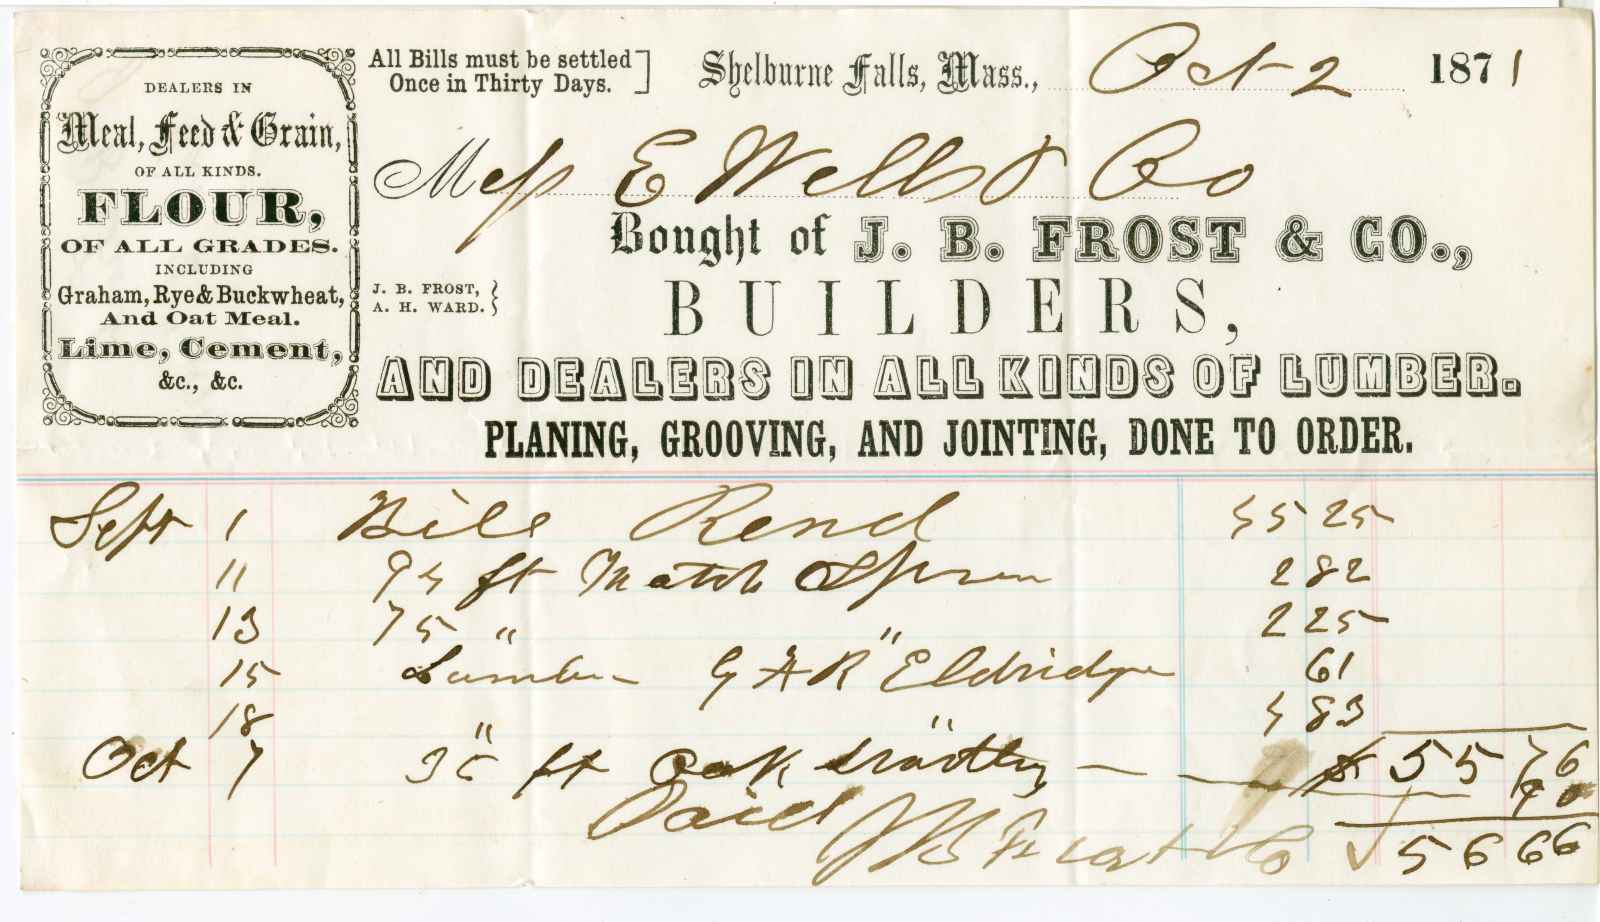 DEALERS IN
Meal, Feed & Grain,
OF ALL KINDS.
FLOUR,
OF ALL GRADES.
INCLUDING
Graham, Rye & Buckwheat,
And Oat Meal.
Lime, Cement,
&c., &c.
All Bills must be settled
Once in Thirty Days.
Shelburne Falls, Mass., Oct 2 1871
Mess E Wells & Co
Bought of J. B. FROST & CO.,
J. B. FROST,
A. H. WARD.
BUILDERS,
AND DEALERS IN ALL KINDS OF LUMBER.
PLANING, GROOVING, AND JOINTING, DONE TO ORDER.
Sept 1 Bill Rend 45 25
11 94 ft Match Spruce 2 82
13 75 " " 2 25
15 Lumber Eldridge 61
18 " " 4 83
Oct 7 35 ft Oak — — $ 55 76
90
Paid J B Frost & Co √ 56 66